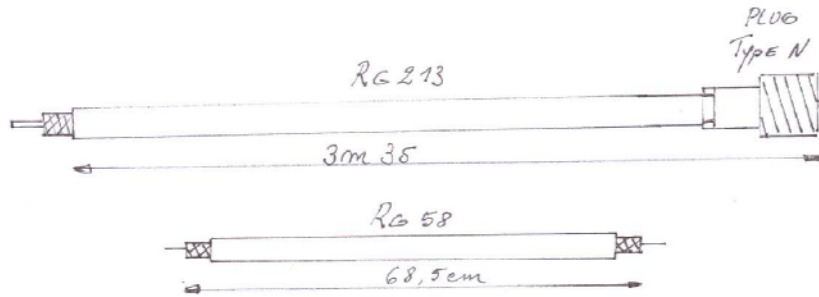 PLUG
Type N
RG 213
3m 35
RG 58
68,5cm